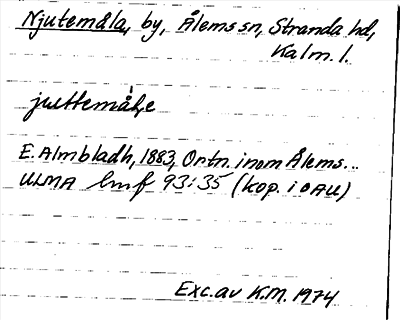 Njutemåla, by, Ålems sn, Stranda hd,
Kalm. l.
juttemåle
E. Almbladh, 1883, Ortn. inom Ålems...
ULMA lmf 93:35 (kop. i OAU)
Exc. av K.M. 1974